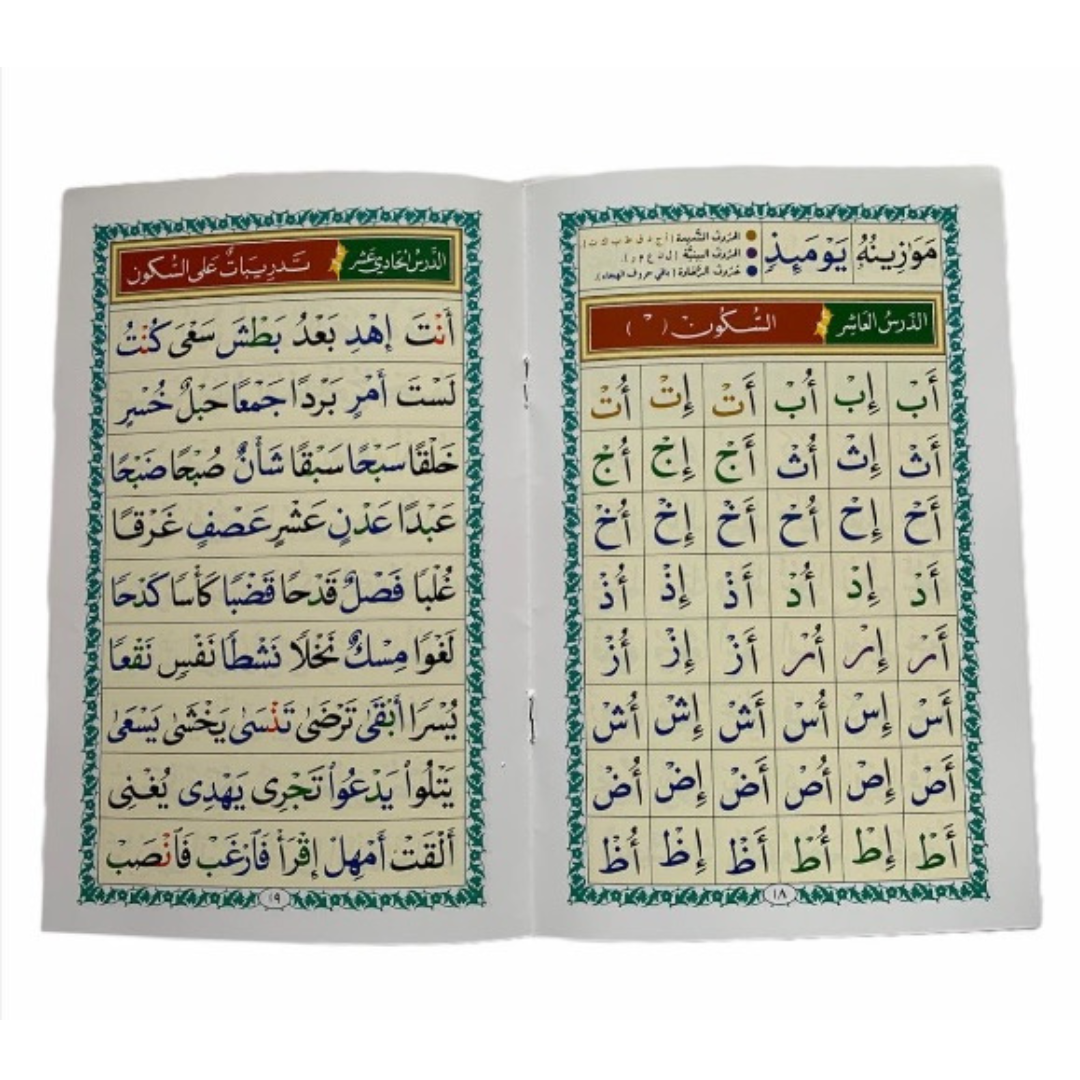 مَوَازِينُهُۥ يَوْمَئِذٍ
الحروف الشديدة (أ ج د ق ط ب ك ت).
الحروف البينية (ل ن ع م ر).
حروف الرخاوة (باقي حروف الهجاء).
الدَّرْسُ العَاشِر السُّكُون ( ْ )
أَبْ إِبْ أُبْ أَتْ إِتْ أُتْ
أَثْ إِثْ أُثْ أَجْ إِجْ أُجْ
أَحْ إِحْ أُحْ أَخْ إِخْ أُخْ
أَدْ إِدْ أُدْ أَذْ إِذْ أُذْ
أَرْ إِرْ أُرْ أَزْ إِزْ أُزْ
أَسْ إِسْ أُسْ أَشْ إِشْ أُشْ
أَصْ إِصْ أُصْ أَضْ إِضْ أُضْ
أَطْ إِطْ أُطْ أَظْ إِظْ أُظْ
١٨
الدَّرْسُ الحَادِي عَشَر تَدرِيبَاتٌ عَلى السُّكُون
أَنْتَ إِهْدِ بَعْدُ بَطْشَ سَعْىَ كُنْتُ
لَسْتَ أَمْرٍ بَرْدًا جَمْعًا حَبْلٌ خُسْرٍ
خَلْقًا سَبْحًا سَبْقًا شَأْنٌ صُبْحًا ضَبْحًا
عَبْدًا عَدْنٍ عَشْرٍ عَصْفٍ غَرْقًا
غُلْبًا فَصْلٌ قَدْحًا قَضْبًا كَأْسًا كَدْحًا
لَغْوًا مِسْكٌ نَخْلًا نَشْطًا نَفْسٍ نَقْعًا
يُسْرًا أَبْقَىٰ تَرْضَىٰ تَنْسَىٰ يَخْشَىٰ يَسْعَىٰ
يَتْلُواْ يَدْعُواْ تَجْرِى يَهْدِى يُغْنِى
أَلْقَتْ أَمْهِلْ إِقْرَأْ فَٱرْغَبْ فَٱنْصَبْ
١٩